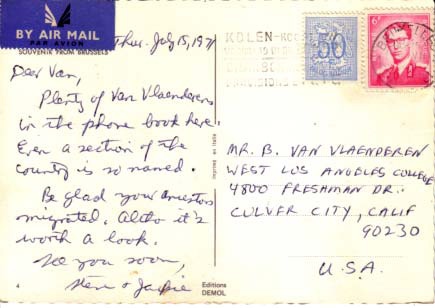 BY AIR MAIL
PAR AVION
SOUVENIR FROM BRUSSELS
July 15, 197
Dear Van,
Plenty of Van Vlaenderens
in the phone book here.
Even a section of the
country is so named.
Be glad your ancestors
migrated. Altho it's
worth a look.
See you soon,
Steve & Jackie
4
Editions
DEMOL
Imprimé en Italie
KOLEN
50
6F
MR. B. VAN VLAENDEREN
WEST LOS ANGELES COLLEGE
4800 FRESHMAN DR.
CULVER CITY, CALIF
90230
U.S.A.